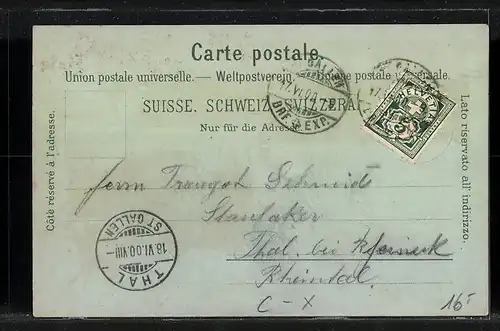 Carte postale.
Union postale universelle. — Weltpostverein. — Unione postale universale.
SUISSE. SCHWEIZ. SVIZZERA.
Nur für die Adresse.
Côté réservé à l'adresse.
Lato riservato all' indirizzo.
ST. GALLEN
17.VI.00
BRF. EXP.
HELVETIA
5
Herrn Traugot Schmids
Thal. bei Rheineck
Rheintal.
C - X
16.-
THAL
18.VI.00.VIII—
(ST. GALLEN)